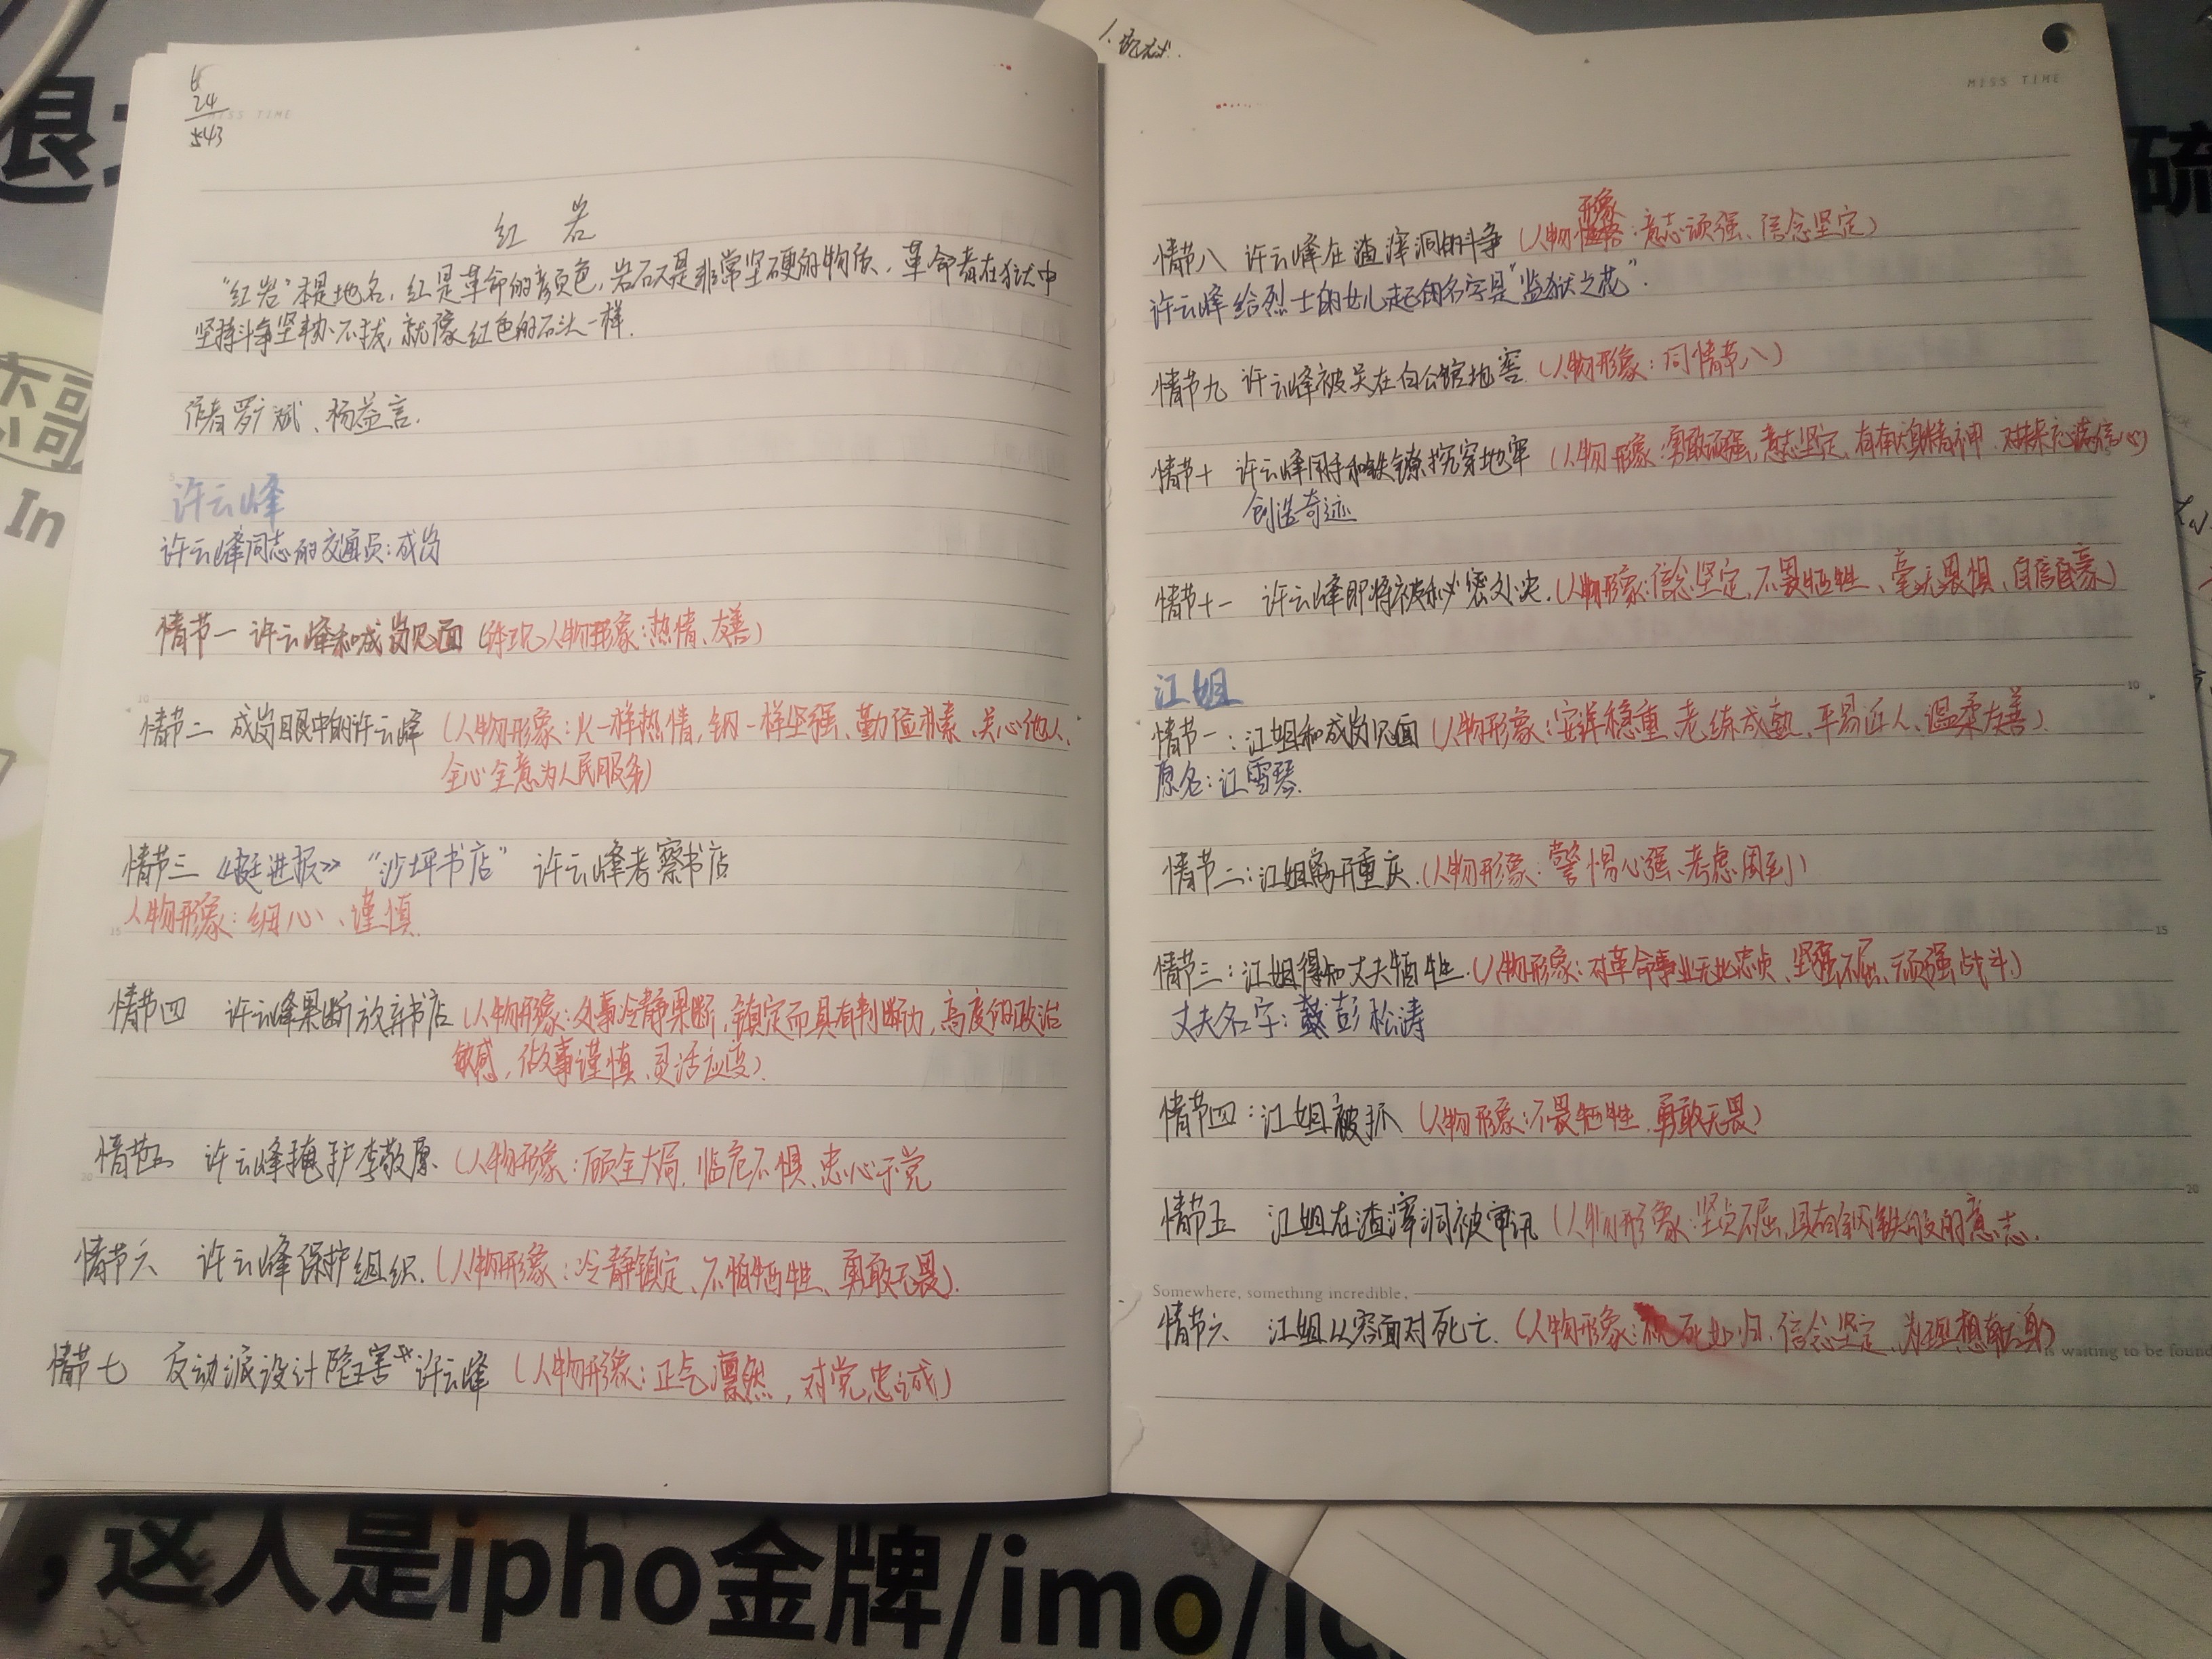 6
24
543
MISS TIME
红 岩
"红岩"本是地名，红是革命的颜色，岩石又是非常坚硬的物质，革命者在狱中
坚持斗争坚韧不拔，就像红色的石头一样.
作者罗广斌、杨益言.
许云峰
许云峰同志的交通员：成岗
情节一 许云峰和成岗见面（体现人物形象：热情、友善）
情节二 成岗眼中的许云峰（人物形象：火一样热情，钢一样坚强、勤俭朴素、关心他人、
全心全意为人民服务）
情节三《挺进报》 "沙坪书店" 许云峰考察书店
人物形象：细心、谨慎
情节四 许云峰果断放弃书店（人物形象：处事冷静果断，镇定而具有判断力，高度的政治
敏感，做事谨慎、灵活应变）.
情节五 许云峰掩护李敬原.（人物形象：顾全大局，临危不惧、忠心于党
情节六 许云峰保护组织.（人物形象：冷静镇定、不怕牺牲、勇敢无畏）.
情节七 反动派设计陷害许云峰（人物形象：正气凛然，对党忠诚）
1.
MISS TIME
形象
情节八 许云峰在渣滓洞的斗争（人物 ：意志顽强、信念坚定）
许云峰给烈士的女儿起的名字是"监狱之花".
情节九 许云峰被关在白公馆地窖（人物形象：同情节八）
情节十 许云峰用手和铁镣挖穿地牢（人物形象：勇敢顽强，意志坚定，有献身精神，对未来充满信心）
创造奇迹
情节十一 许云峰即将被秘密处决.（人物形象：信念坚定，不畏牺牲、毫无畏惧、自信自豪）
江姐
情节一：江姐和成岗见面（人物形象：安详稳重、老练成熟、平易近人、温柔友善）.
原名：江雪琴.
情节二：江姐离开重庆.（人物形象：警惕心强、考虑周到）
情节三：江姐得知丈夫牺牲.（人物形象：对革命事业无比忠贞、坚强不屈、顽强战斗）
丈夫名字：彭松涛
情节四：江姐被抓（人物形象：不畏牺牲，勇敢无畏）
情节五 江姐在渣滓洞被审讯（人物形象：坚贞不屈，具有钢铁般的意志.
Somewhere, something incredible,
情节六 江姐从容面对死亡.（人物形象：视死如归、信念坚定、为理想献身）
is waiting to be found
10
15
20
In
硫
，这人是ipho金牌/imo/